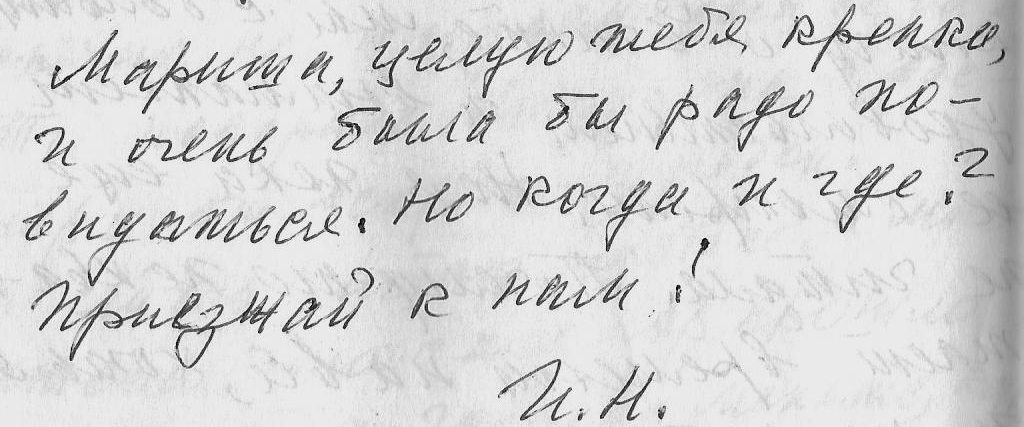 Мариша, целую тебя крепко,
и очень была бы рада по-
видаться. Но когда и где?
Приезжай к нам!
И.Н.